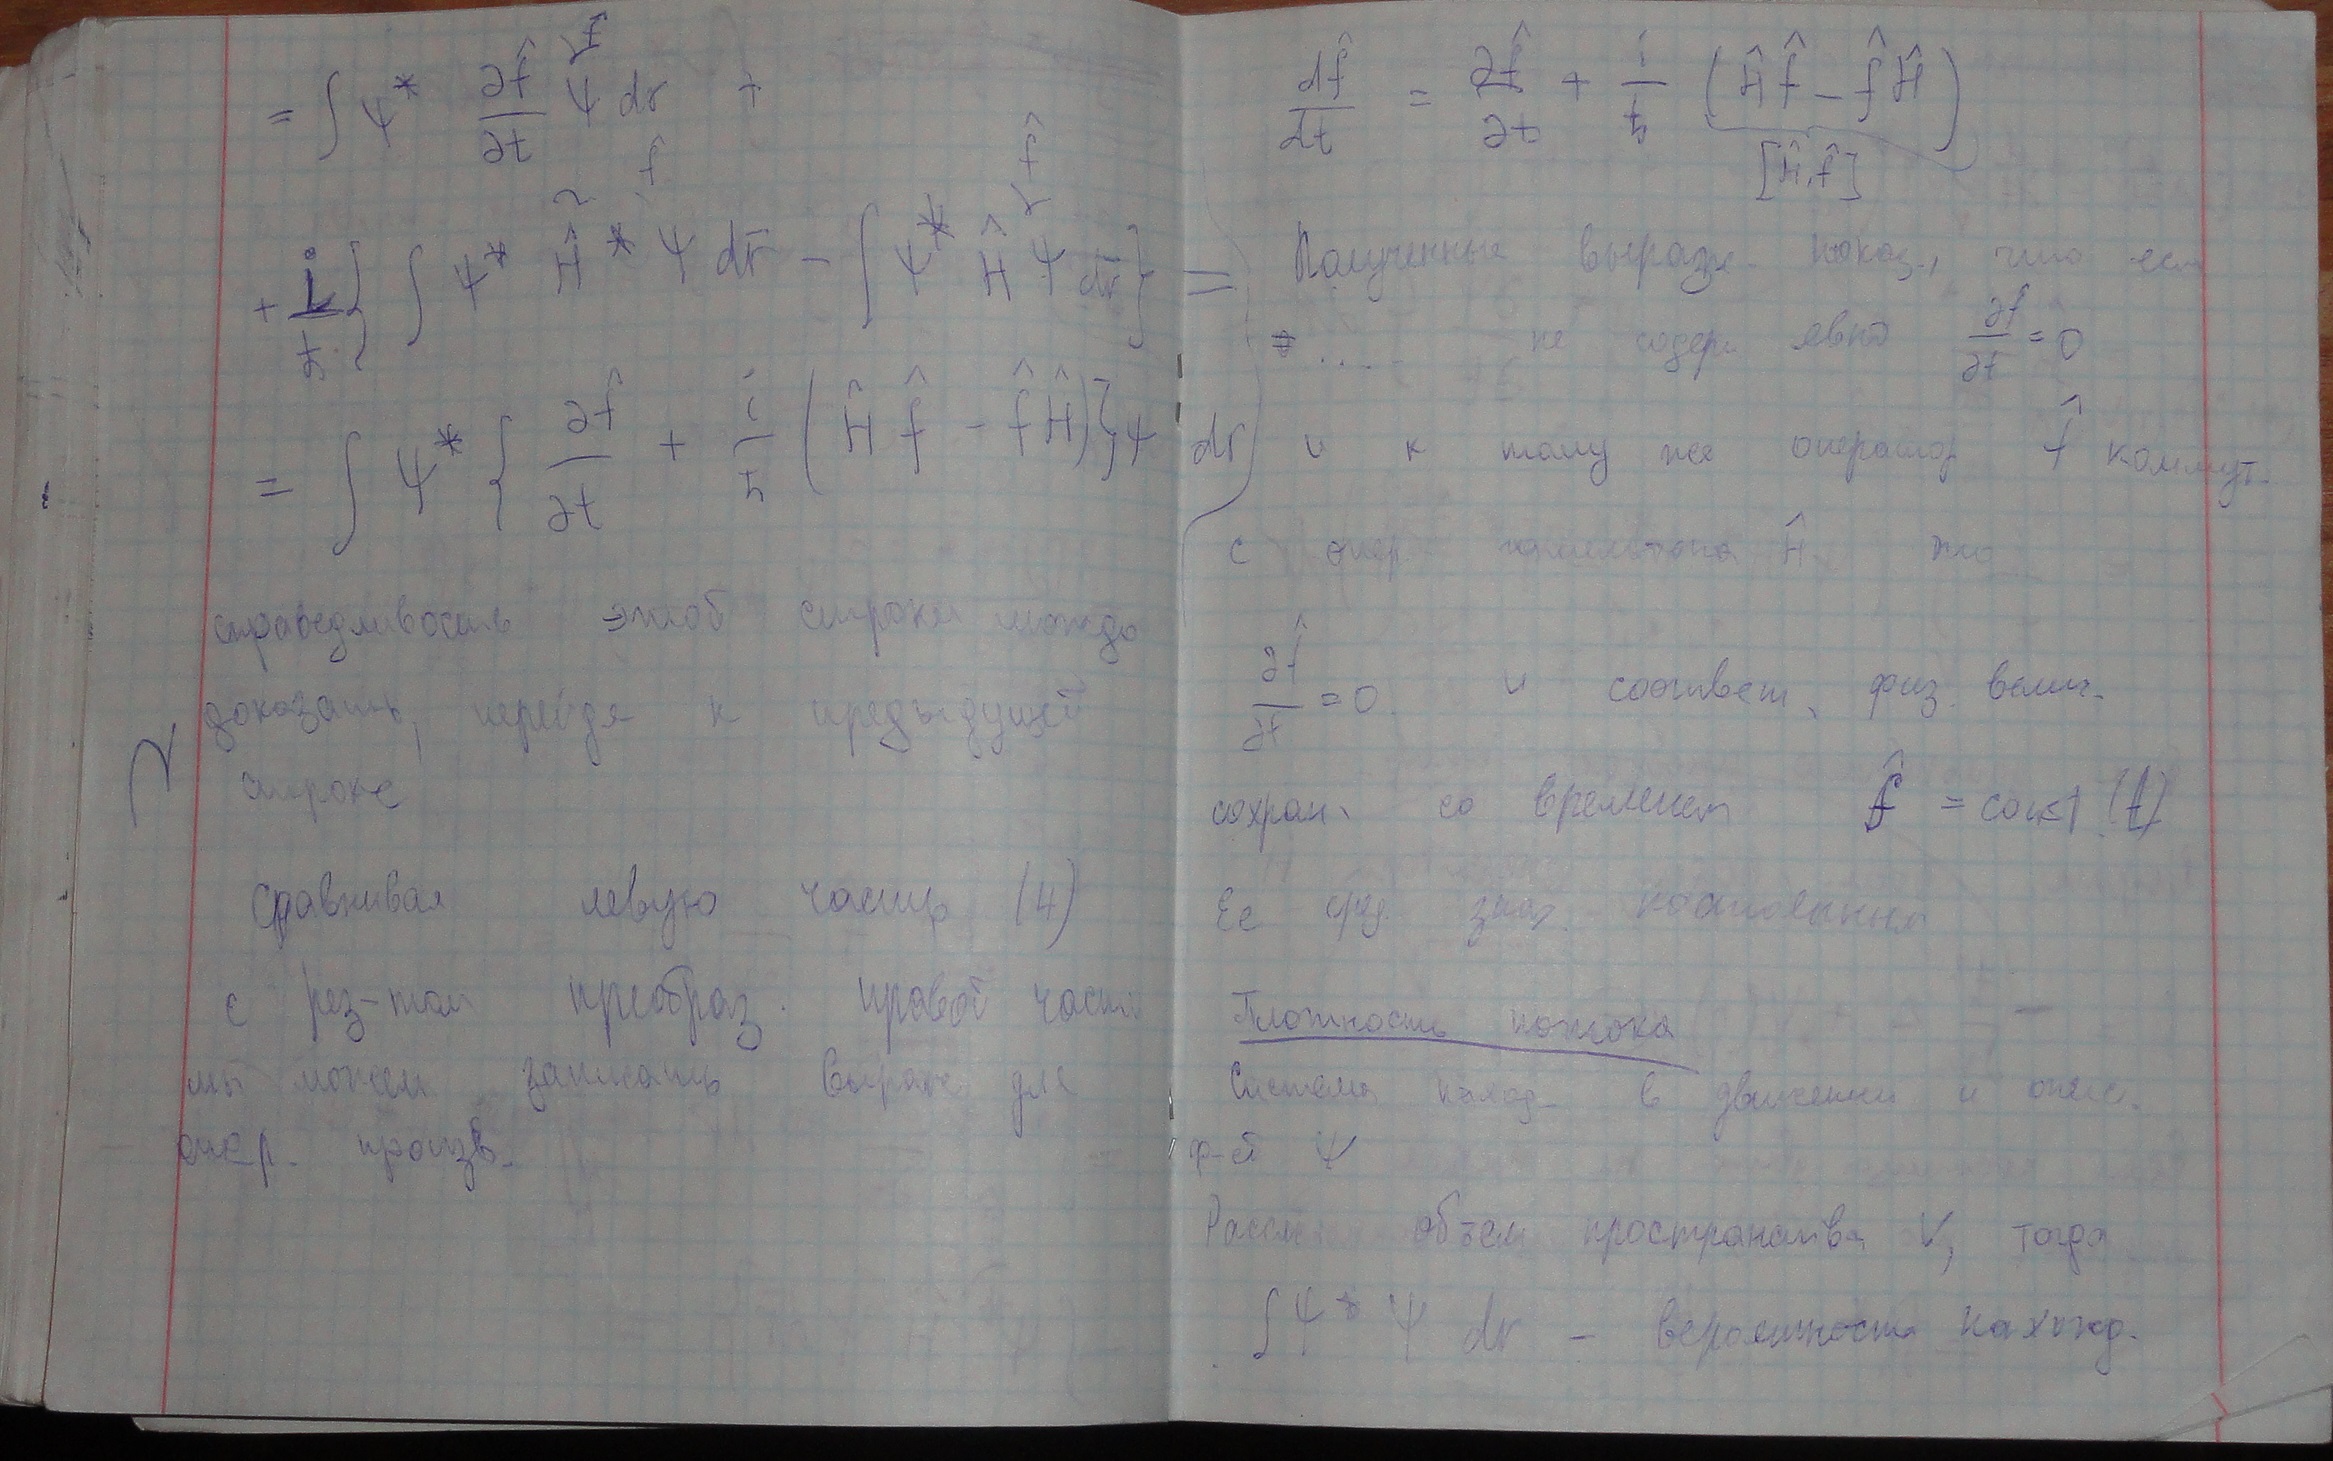 = ∫ ψ* ∂f̂/∂t ψ dr +
f̂
+ i/ħ { ∫ ψ* Ĥ* ψ dr̄ − ∫ ψ* Ĥ ψ dr̄ } =
f̂ f̂
= ∫ ψ* { ∂f̂/∂t + i/ħ (Ĥ f̂ − f̂ Ĥ) } ψ dr
справедливость этой строки можно
доказать, перейдя к предыдущей
строке
Сравнивая левую часть (4)
с рез-том преобраз. правой части
мы можем записать выраж для
опер. произв.
df̂/dt = ∂f̂/∂t + i/ħ (Ĥ f̂ − f̂ Ĥ)
[Ĥ,f̂]
Полученные выраж. показ., что если
..... не содерж явно ∂f/∂t = 0
и к тому же оператор f̂ коммут.
с опер. Ĥ то
∂f̂/∂t = 0 и соответ. физ. велич.
сохран. со временем f̂ = const (t)
Ее сред. знач.
Плотность потока
Система наход. в движении и опис.
ф-ей ψ
Рассм объем пространства V, тогда
∫ψ* ψ dr − вероятность нахожд.